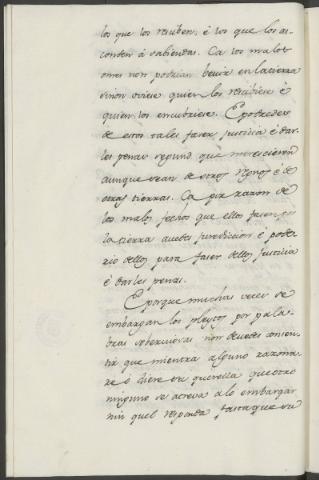 los que los resciben: é los que los as-
conden á sabienda. Ca los malos
omes non podrian bevir en la tierra
sinon oviese quien los rescibiese é
quien los encubriese. E podredes
de estos tales facer justicia é dar-
les penas segund que merescieron
aunque sean de otros regnos é de
otras tierras. Ca por razon de
los malos fechos que ellos facen en
la tierra avedes juredicion é pode-
rio dellos para facer dellos justicia
é darles penas.
E porque muchas veces se
embargan los pleytos por pala-
bras soberviosas non devedes consen-
tir que mientra alguno razona-
re ó diere su querella que otro
ninguno se atreva a lo embargar
nin quel responda fasta que su